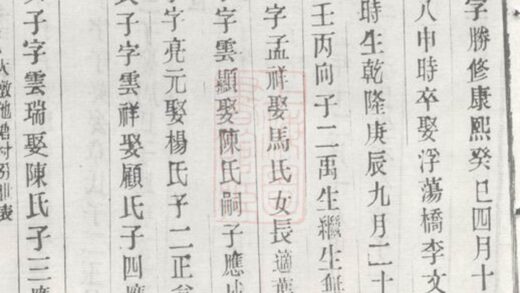 字勝修康熙癸巳四月十
八申時卒娶浮蕩橋李文
時生乾隆庚辰九月二十
壬丙向子二禹生繼生無
字孟祥娶馬氏女長適葉
字雲顯娶陳氏嗣子應
字亮元娶楊氏子二正
子字雲祥娶顧氏子四應
子字雲瑞娶陳氏子三應